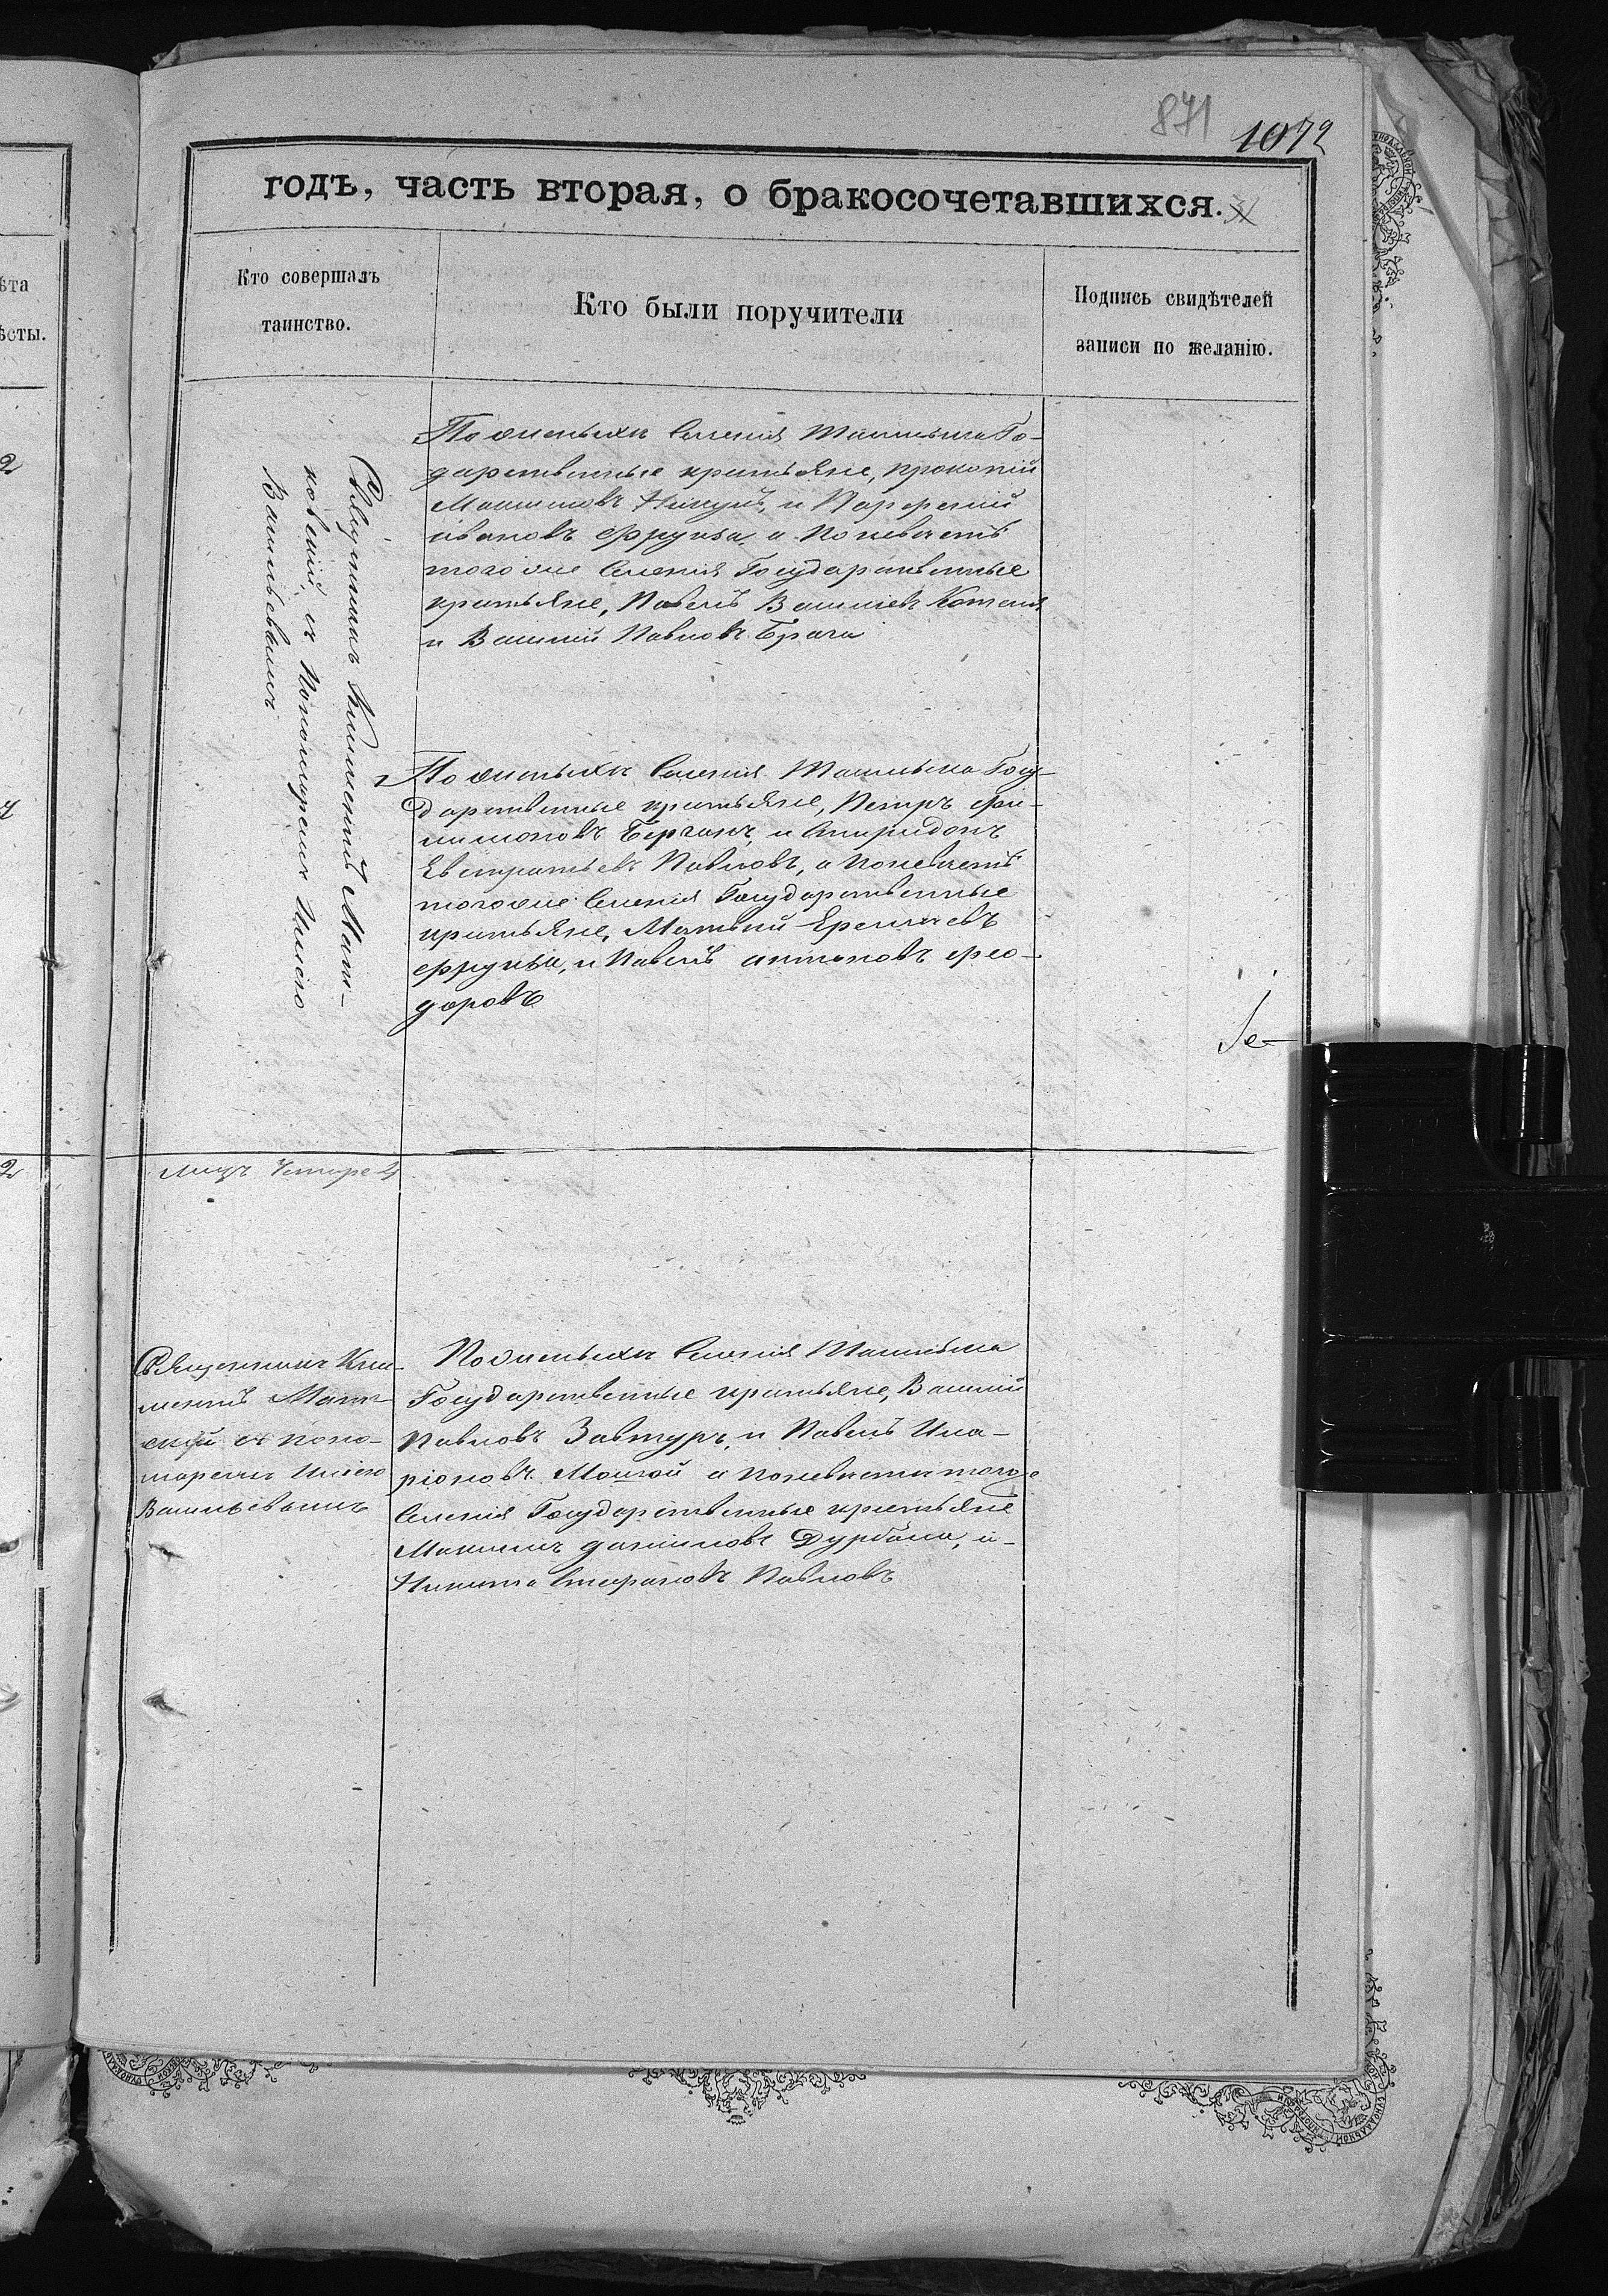 871
1072
годъ, часть вторая, о бракосочетавшихся.
Кто совершалъ
таинство.
Кто были поручители
Подпись свидѣтелей
записи по желанію.
ѣта
ѣсты.
2
2
Священникъ Климентъ Мат-
ковскій съ Пономаремъ
Васильевымъ
По женихѣ Селенія Ташлыка Го-
дарственные крестьяне, Прокопій
Максимовъ и Парфеній
Ивановъ Фрунза, а По невѣстѣ
того же Селенія Государственные
крестьяне, Павелъ Василіевъ
и Василий Павловъ
По женихѣ Селенія Ташлыка Госу-
дарственные крестьяне, Петръ Фи-
лимоновъ Берганъ, и Спиридонъ
Евстратьевъ Павловъ, а По невѣстѣ
того же Селенія Государственные
крестьяне, Матвѣй Еремѣевъ
Фрунза, и Павелъ Антоновъ Фео-
доровъ
Се-
лицъ Четыре 4
Священникъ Кли-
ментъ Мат
скій съ поно-
маремъ
Васильевымъ
По женихѣ Селенія Ташлыка
Государственные крестьяне, Василий
Павловъ Завтуръ, и Павелъ Ила-
ріоновъ а по невѣсти того
Селенія Государственные крестьяне
Максимъ Даниловъ Дурбала, и-
Никита Стефановъ Павловъ